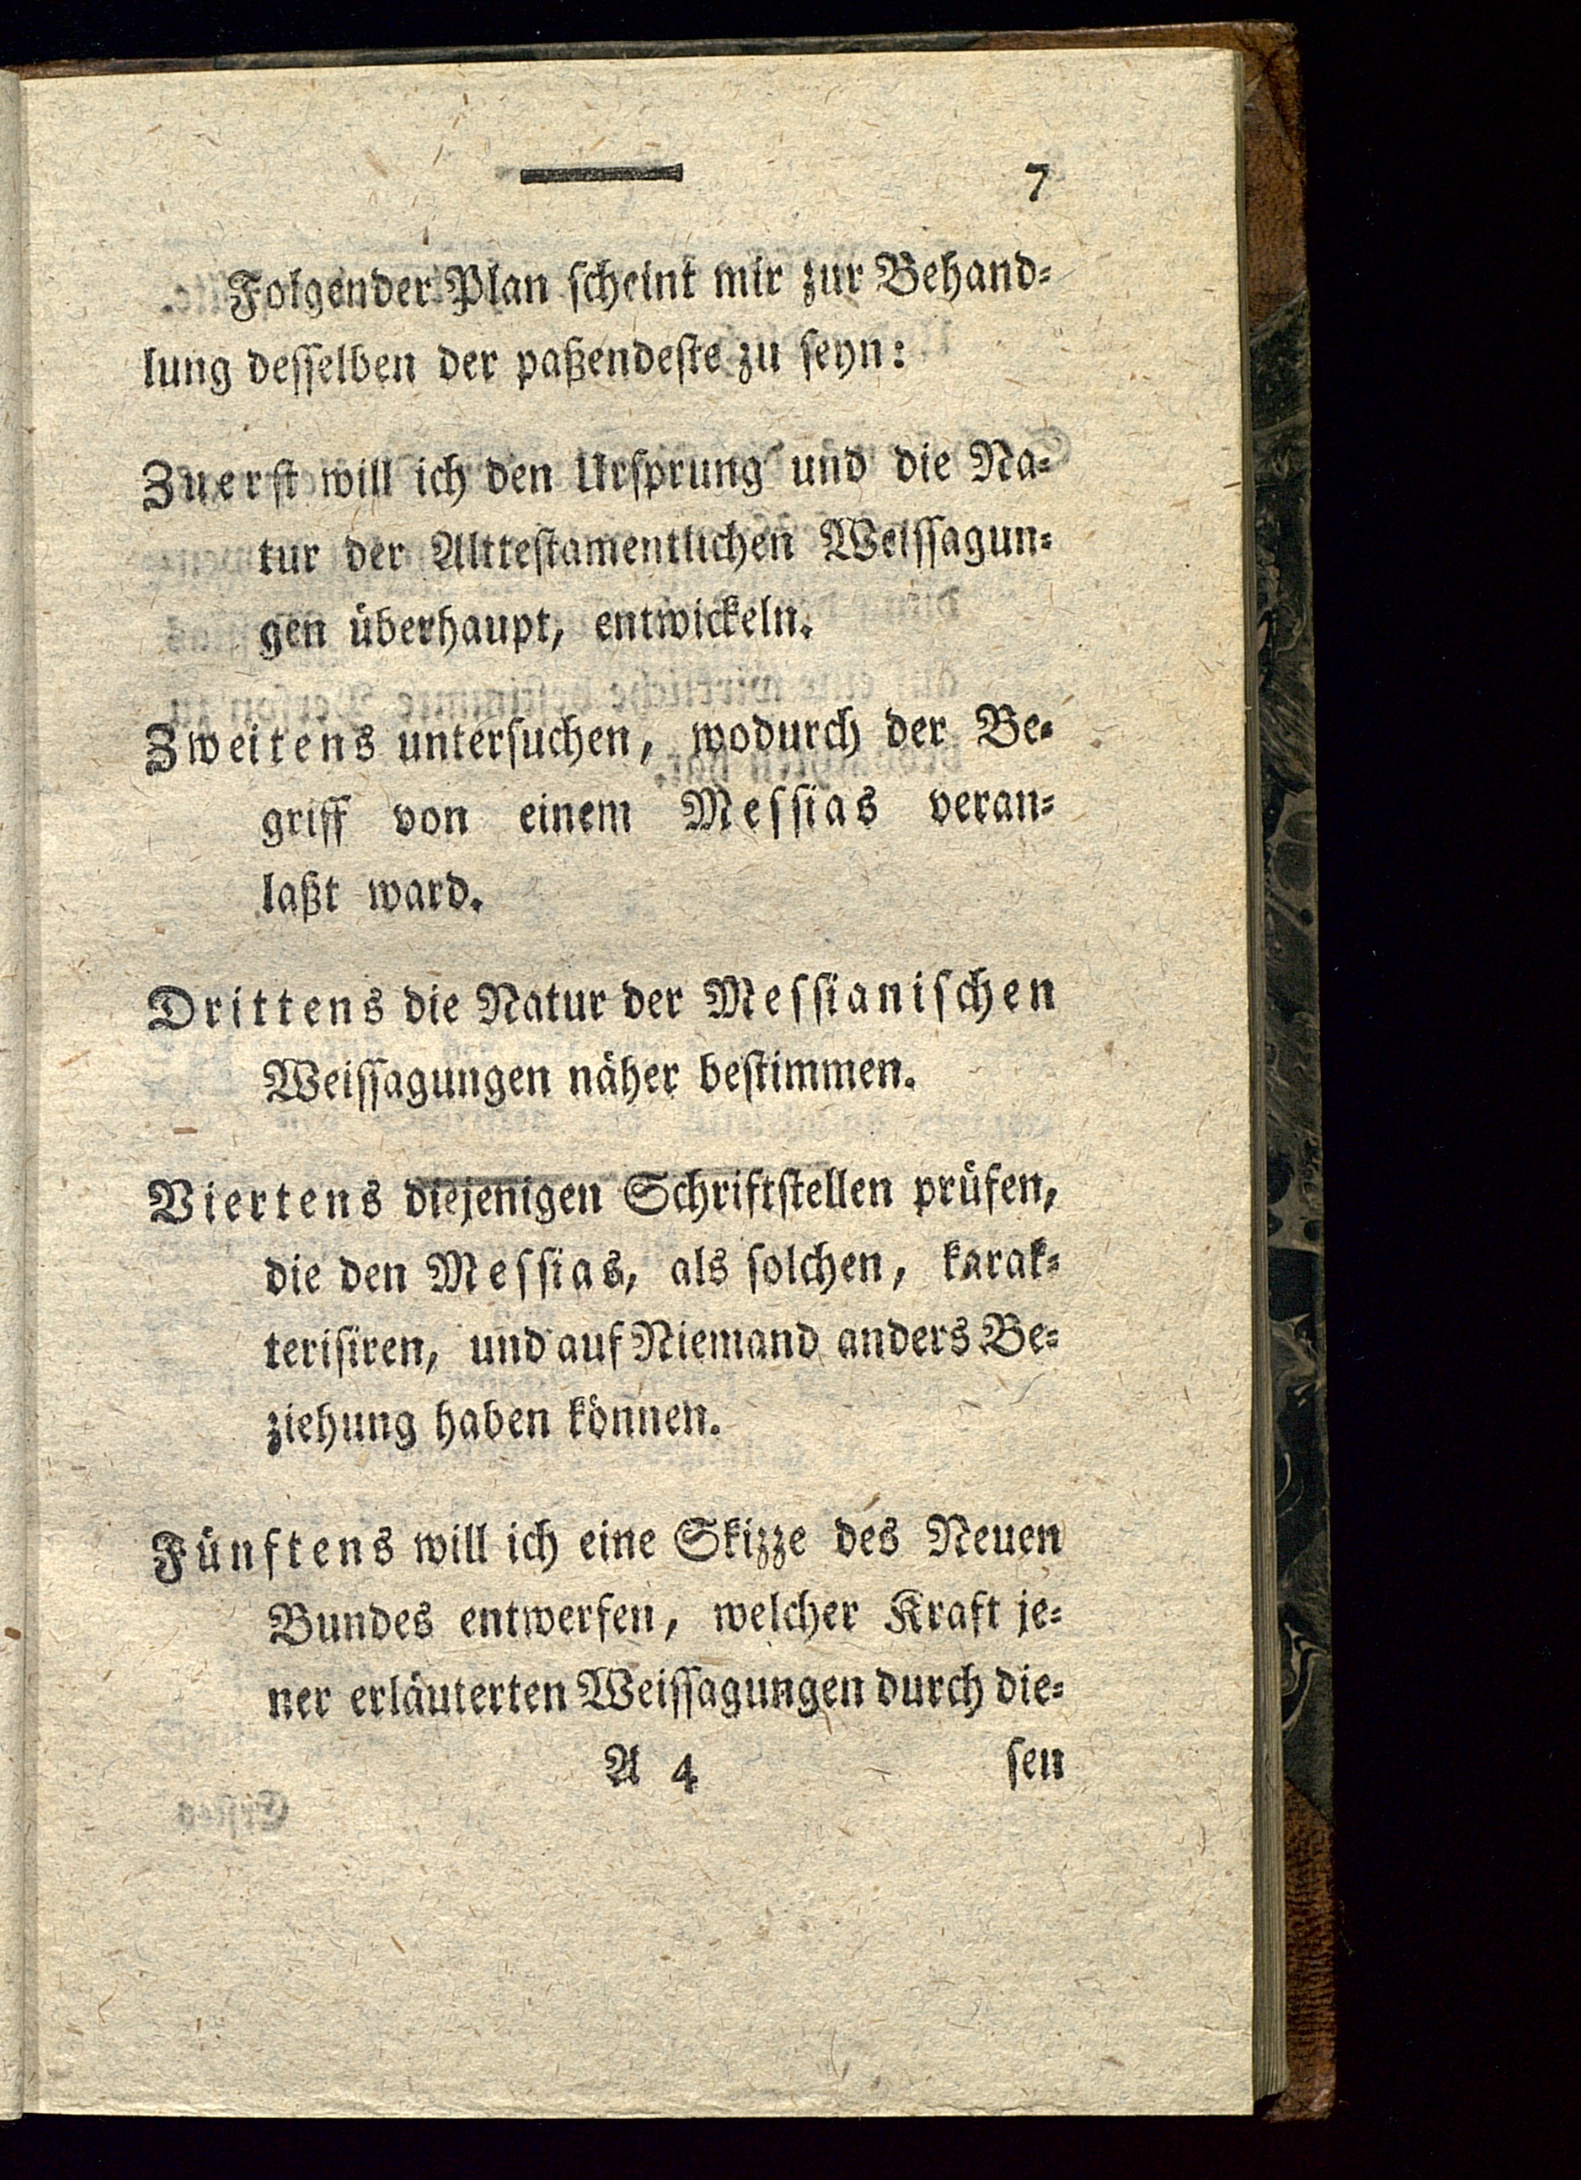 7
Folgender Plan scheint mir zur Behand-
lung desselben der paßendeste zu seyn:
Zuerst will ich den Ursprung und die Na-
tur der Alttestamentlichen Weissagun-
gen überhaupt, entwickeln.
Zweitens untersuchen, wodurch der Be-
griff von einem Messias veran-
laßt ward.
Drittens die Natur der Messianischen
Weissagungen näher bestimmen.
Viertens diejenigen Schriftstellen prüfen,
die den Messias, als solchen, karak-
terisiren, und auf Niemand anders Be-
ziehung haben können.
Fünftens will ich eine Skizze des Neuen
Bundes entwerfen, welcher Kraft je-
ner erläuterten Weissagungen durch die-
A 4 sen